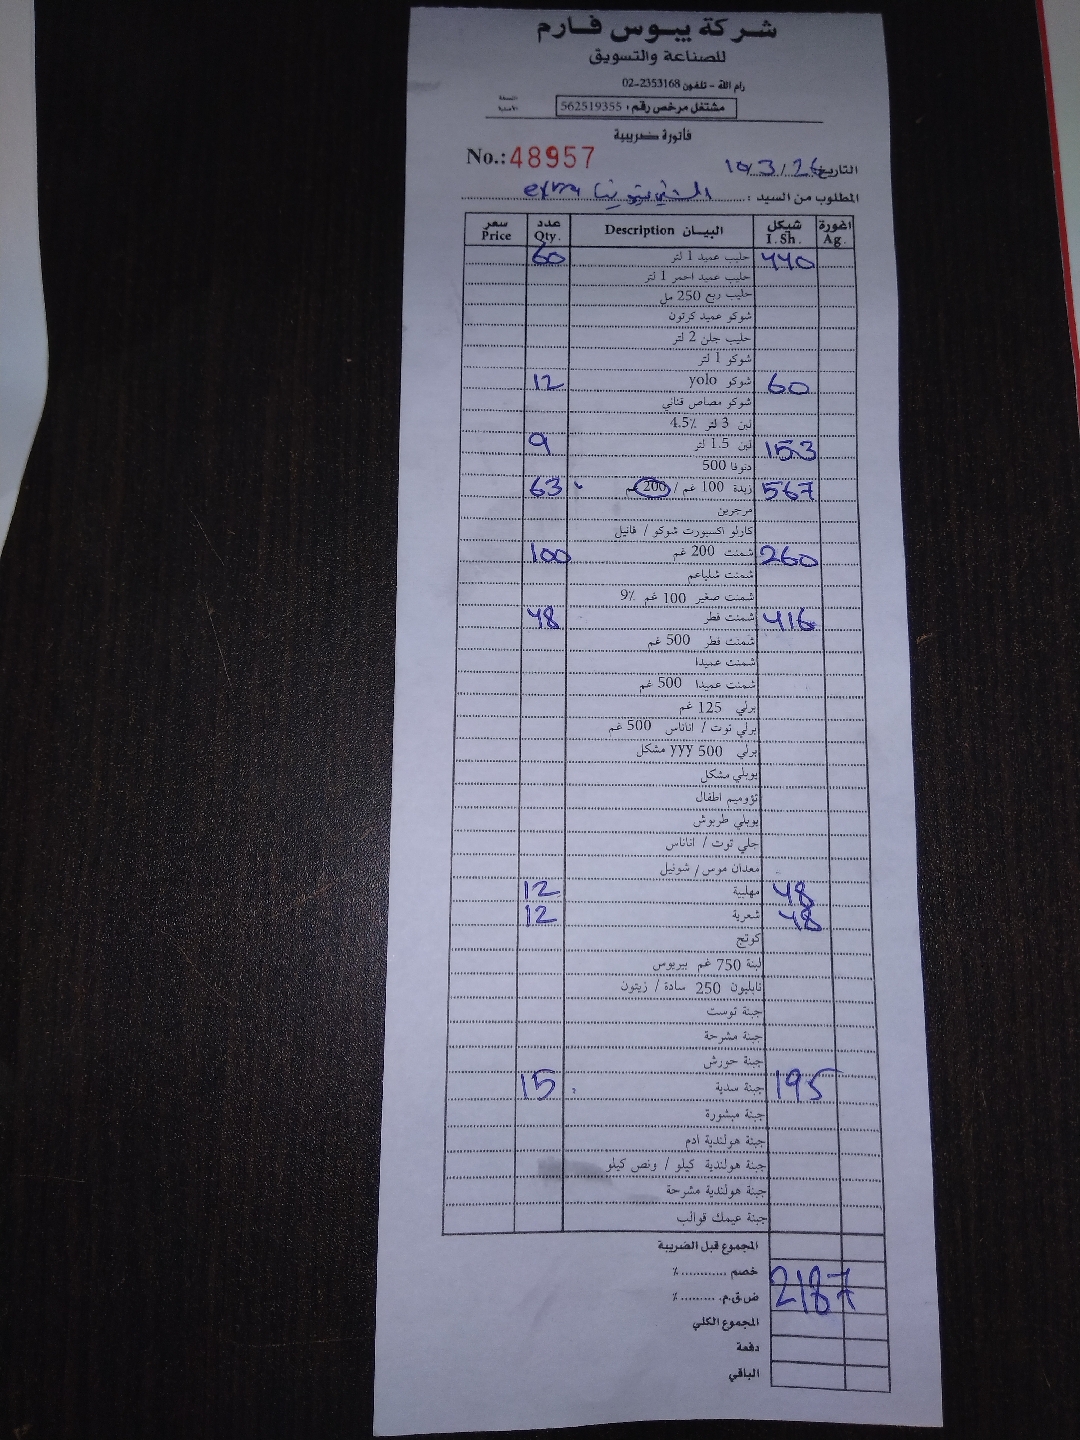 شركة يبوس فارم
للصناعة والتسويق
رام الله - تلفون 02-2353168
مشتغل مرخص رقم: 562519355
فاتورة ضريبية
No.: 48957
التاريخ 10/3/26
المطلوب من السيد: extra
سعر Price عدد Qty. البيـان Description شيكل I.Sh. اغورة Ag.
60 حليب عميد 1 لتر 440
حليب عميد احمر 1 لتر
حليب ربع 250 مل
شوكو عميد كرتون
حليب جلن 2 لتر
شوكو 1 لتر
12 شوكو yolo 60
شوكو مصاص قناني
لبن 3 لتر 4.5٪
9 لبن 1.5 لتر 153
دنوفا 500
63 زبدة 100 غم / 200 غم 567
مرجرين
كارلو اكسبورت شوكو / فانيل
100 شمنت 200 غم 260
شمنت شلباعم
شمنت صغير 100 غم 9٪
48 شمنت فطر 416
شمنت فطر 500 غم
شمنت عميدا
شمنت عميدا 500 غم
برلي 125 غم
برلي توت / اناناس 500 غم
برلي 500 yyy مشكل
يوبلي مشكل
تؤوميم اطفال
يوبلي طربوش
جلي توت / اناناس
معدان موس / شونيل
12 مهلبية 48
12 شعرية 48
كوتج
لبنة 750 غم بيريوس
نابليون 250 سادة / زيتون
جبنة توست
جبنة مشرحة
جبنة حورش
15 جبنة سدية 195
جبنة مبشورة
جبنة هولندية ادم
جبنة هولندية كيلو / ونص كيلو
جبنة هولندية مشرحة
جبنة عيمك قوالب
المجموع قبل الضريبة
خصم ............ ٪ 2187
ض.ق.م. ......... ٪
المجموع الكلي
دفعة
الباقي